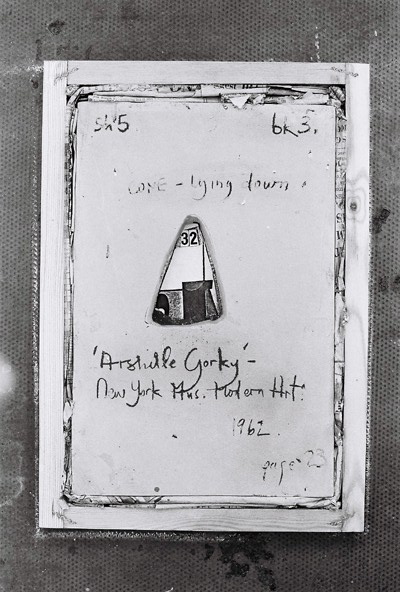 sh'5 bk3.
CONE - lying down.
32
'Arshille Gorky' -
New York Mus. Modern Art.
1962.
page 23